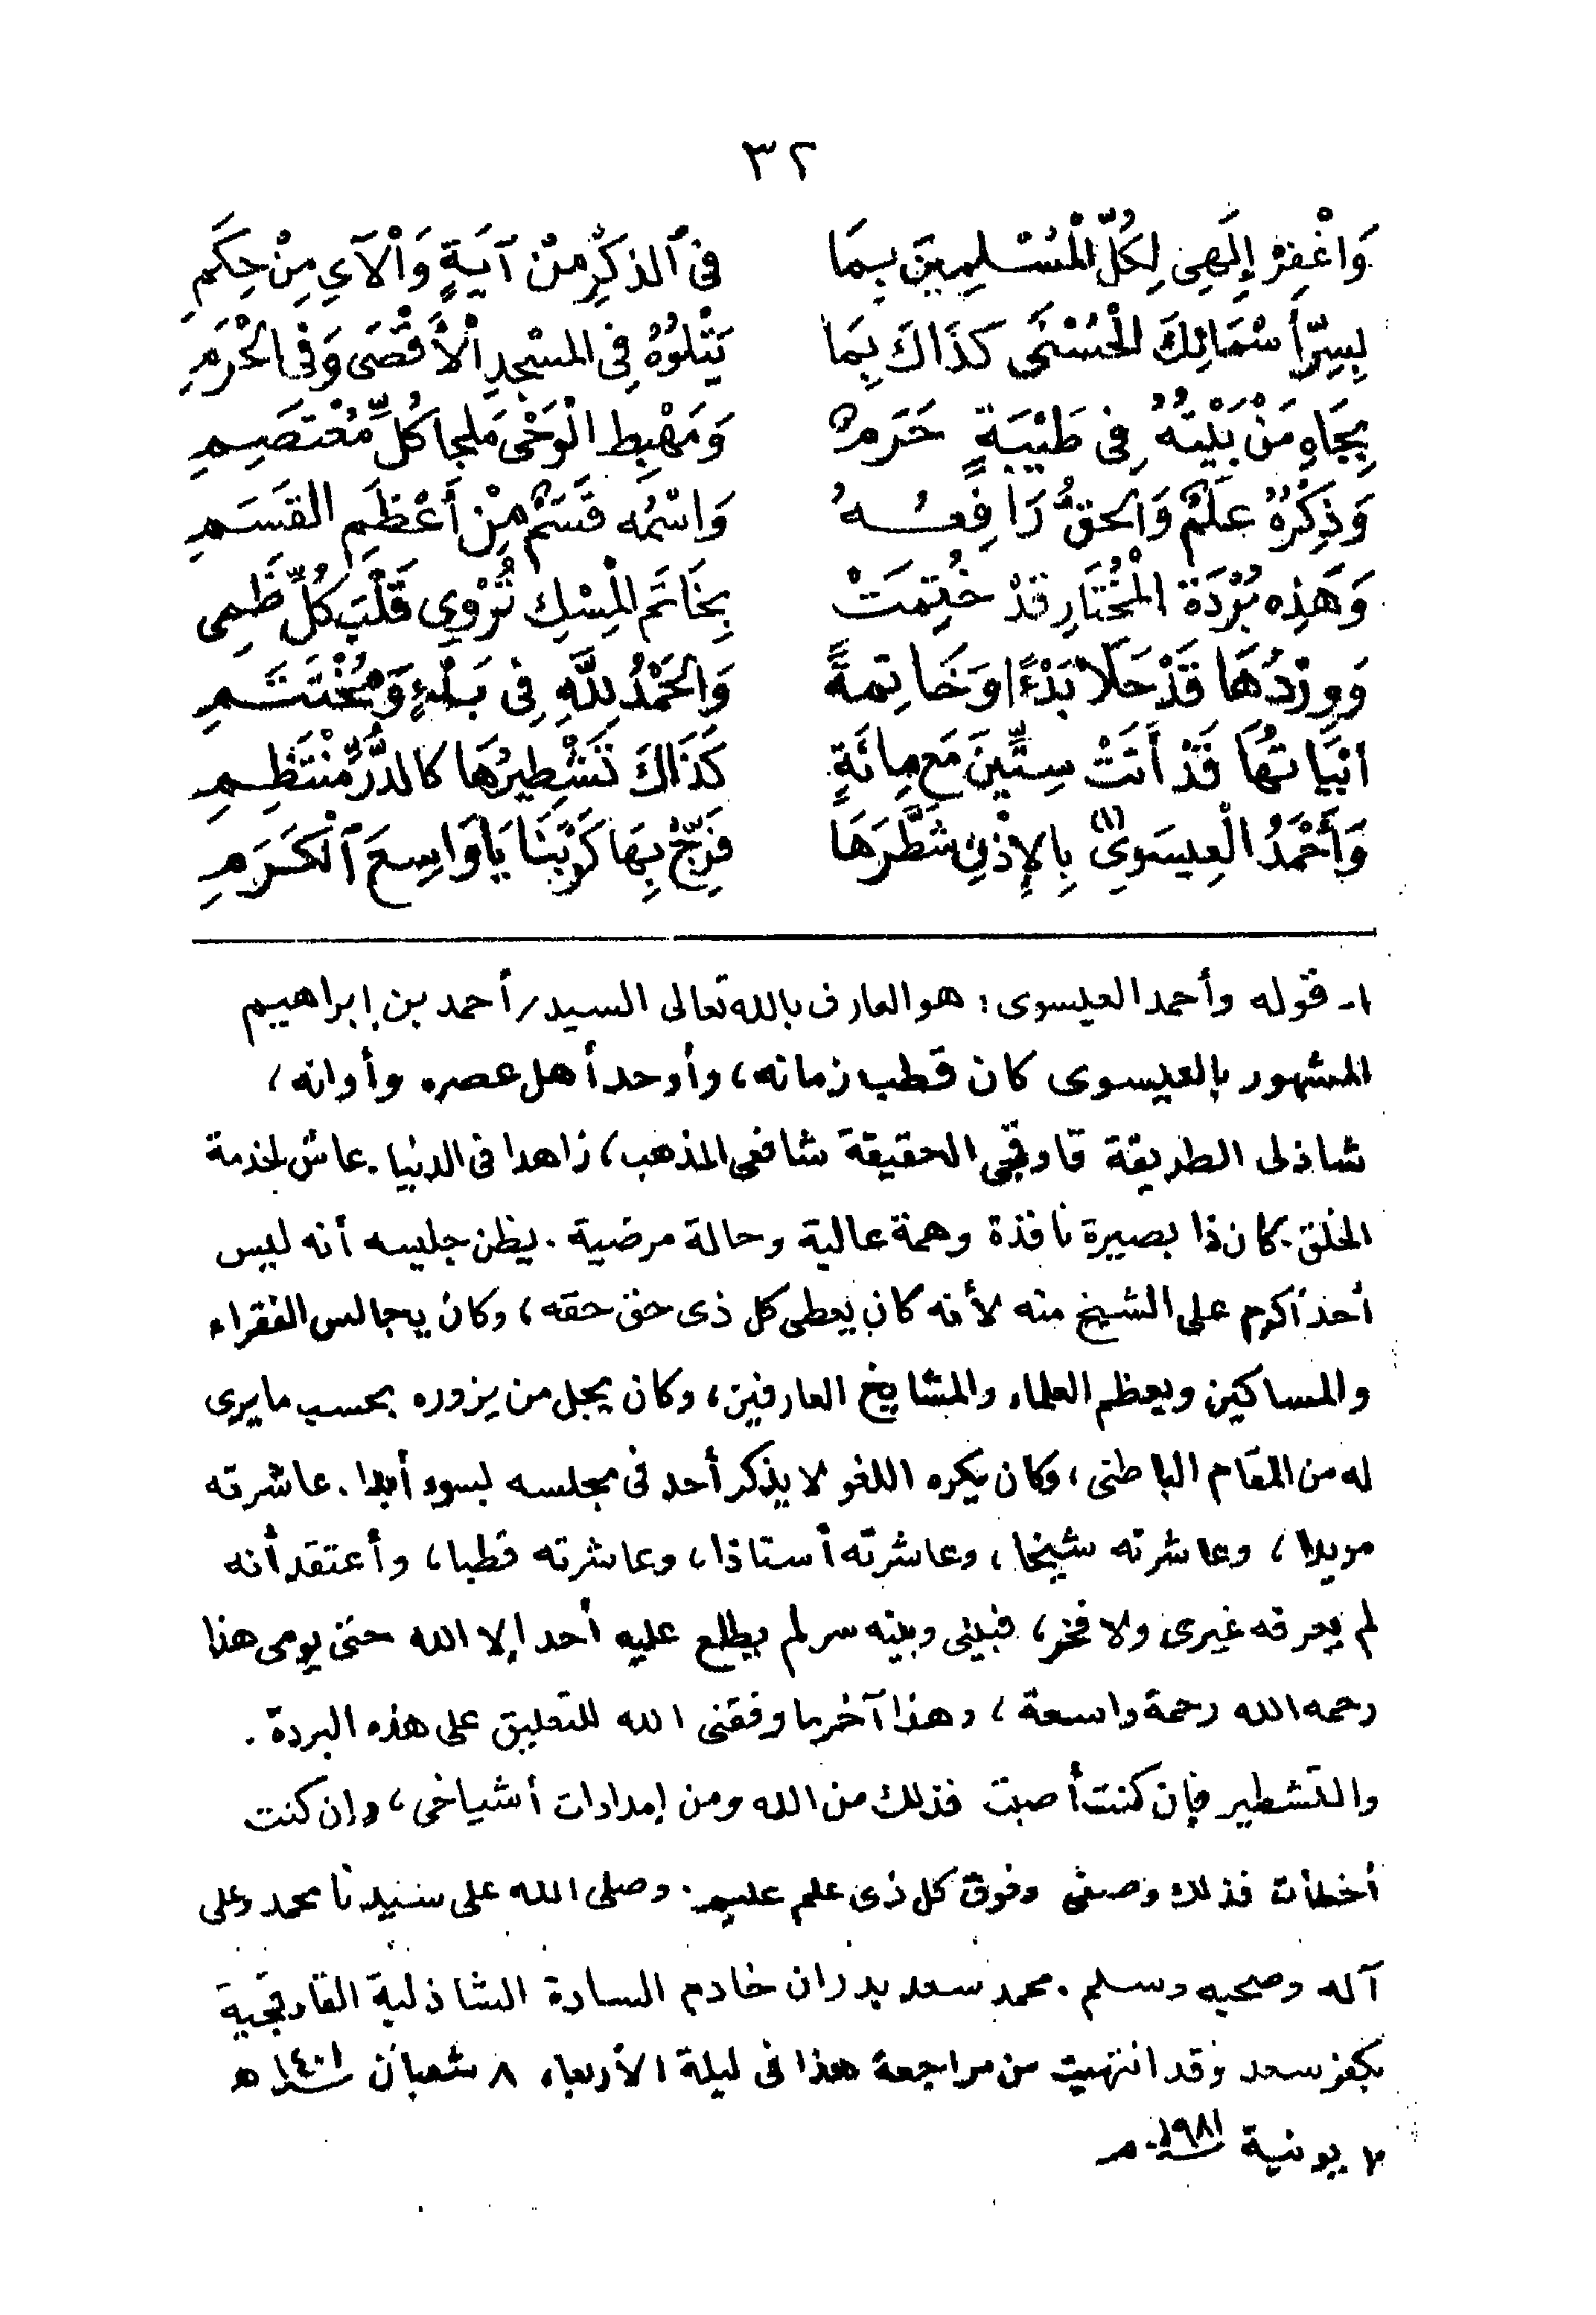 ٣٢
وَاغْفِرْ إِلَهِى لِكُلِّ الْمُسْلِمِينَ بِمَا فِى ٱلذِكْرِ مِنْ آيَةٍ وَالْآيِ مِنْ حِكَمِ
بِسِرِّ أَسْمَائِكَ الْحُسْنَى كَذَاكَ بِمَا يَتْلُوُهُ فِى المسْجِدِ الْأَقْصَى وَفِى الْحَرَمِ
بِجَاهِ مَنْ بَيْتُهُ فِى طَيْبَةٍ حَرَمٌ وَمَهْبِطِ الْوَحْىِ مَلجا كُلِّ مُعْتَصِمِ
وَذِكْرُهُ عَلَمٌ وَالحقُّ رَافِعُهُ وَاسْمُه قَسَمٌ مِنْ أَعْظَمِ القَسَمِ
وَهَذِه بُرْدَة الْمُخْتَارِ قَدْ خُتِمَتْ بِخَاتَمِ الْمِسْكِ تُرْوِي قَلْبَ كُلِّ ظَمِى
وَوِرْدُهَا قَدْ حَلَا بَدْءًا وَخَاتِمةً وَالحَمْدُ لِلَّهِ فِى بَدْءٍ وَمُخْتَتَمِ
ابْيَاتُهَا قَدْ أَتَتْ سِتِّينَ مَع مِائَةٍ كَذَاكَ تَشْطِيرُهَا كالدُّرِّ مُنْتَظِمِ
وَأَحْمَدُ الْعِيسَوِىُّ (١) بِالإِذْنِ شَطَّرَهَا فَرِّجْ بِهَا كَرْبَنَا يَا وَاسِعَ ٱلْكَرَمِ
١- قوله وأحمد العيسوى : هو العارف بالله تعالى السيد / أحمد بن إبراهيم
المشهور بالعيسوى كان قطب زمانه ، وأوحد أهل عصره وأوانه ،
شاذلى الطريقة قاوقجى الحقيقة شافعى المذهب ، زاهدا فى الدنيا . عاش لخدمة
الخلق . كان ذا بصيرة نافذة وهمة عالية وحالة مرضية . يظن جليسه أنه ليس
أحد أكرم على الشيخ منه لأنه كان يعطى كل ذى حق حقه ، وكان يجالس الفقراء
والمساكين ويعظم العلماء والمشايخ العارفين ، وكان يجل من يزوره بحسب ما يرى
له من المقام الباطنى ، وكان يكره اللغو لا يذكر أحد فى مجلسه بسوء أبدا . عاشرته
مريدا ، وعاشرته شيخا ، وعاشرته أستاذا ، وعاشرته قطبا ، وأعتقد أنه
لم يعرفه غيرى ولا فخر ، فبينى وبينه سر لم يطلع عليه أحد إلا الله حتى يومى هذا
رحمه الله رحمة واسعة ، وهذا آخر ما وفقنى الله للتعليق على هذه البردة .
والتشطير فإن كنت أصبت فذلك من الله ومن إمدادات أشياخى ، وإن كنت
أخطأت فذلك وصفى وفوق كل ذى علم عليم . وصلى الله على سيدنا محمد وعلى
آله وصحبه وسلم . محمد سعد بدران خادم السادة الشاذلية القاوقجية
بكفر سعد وقد انتهيت من مراجعة هذا فى ليلة الأربعاء ٨ شعبان ١٤٠١ ه
يونية ١٩٨١ م